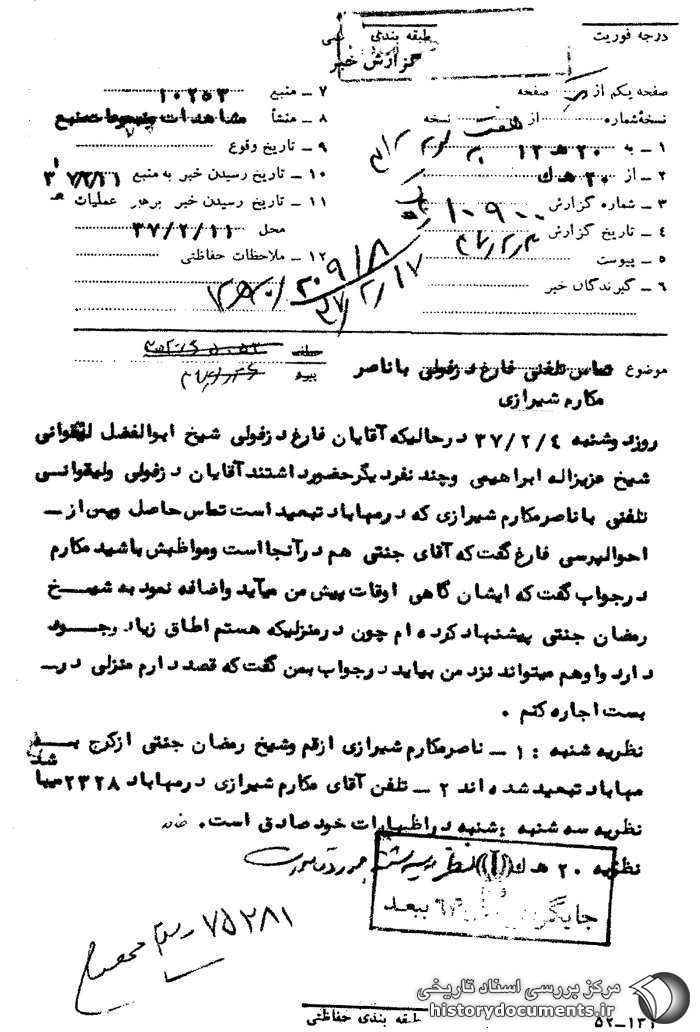 درجه فوریت
طبقه بندی
گزارش خبر
صفحه یکم از صفحه
نسخه شماره از نسخه
۱ ـ به ۲۰ هـ ۱۲
۲ ـ از ۲۰ هـ ک
۳ ـ شماره گزارش ۱۰۹۰۰
۴ ـ تاریخ گزارش
۵ ـ پیوست
۶ ـ گیرندگان خبر
۷ ـ منبع ۱۰۲۵۳
۸ ـ منشأ مشاهدات منبع
۹ ـ تاریخ وقوع
۱۰ ـ تاریخ رسیدن خبر به منبع
۱۱ ـ تاریخ رسیدن خبر برهبر عملیات
محل ۳۷/۲/۱۱
۱۲ ـ ملاحظات حفاظتی
۲۰۹/۸
۳۷/۲/۱۷
موضوع تماس تلفنی فارغ دزفولی با ناصر
مکارم شیرازی
روز دوشنبه ۳۷/۲/۴ در حالیکه آقایان فارغ دزفولی شیخ ابوالفضل
شیخ عزیزاله ابراهیمی وچند نفر دیگر حضور داشتند آقایان دزفولی
تلفنی با ناصر مکارم شیرازی که در مهاباد تبعید است تماس حاصل وپس از ـ
احوالپرسی فارغ گفت که آقای جنتی هم در آنجا است ومواظبش باشید مکارم
در جواب گفت که ایشان گاهی اوقات پیش من میآید واضافه نمود به شیخ
رمضان جنتی پیشنهاد کرده ام چون در منزلیکه هستم اطاق زیاد وجود
دارد واوهم میتواند نزد من بیاید در جواب بمن گفت که قصد دارم منزلی درـ
بست اجاره کنم .
نظریه شنبه : ۱ ـ ناصر مکارم شیرازی از قم وشیخ رمضان جنتی از کرج به
مهاباد تبعید شده اند ۲ ـ تلفن آقای مکارم شیرازی در مهاباد ۲۳۲۸ میباشد
نظریه سه شنبه : شنبه در اظهارات خود صادق است .
نظریه ۲۰ هـ ک
جایگزین
ببعد
۷۵۲۸۱
طبقه بندی حفاظتی
مرکز بررسی اسناد تاریخی
historydocuments.ir